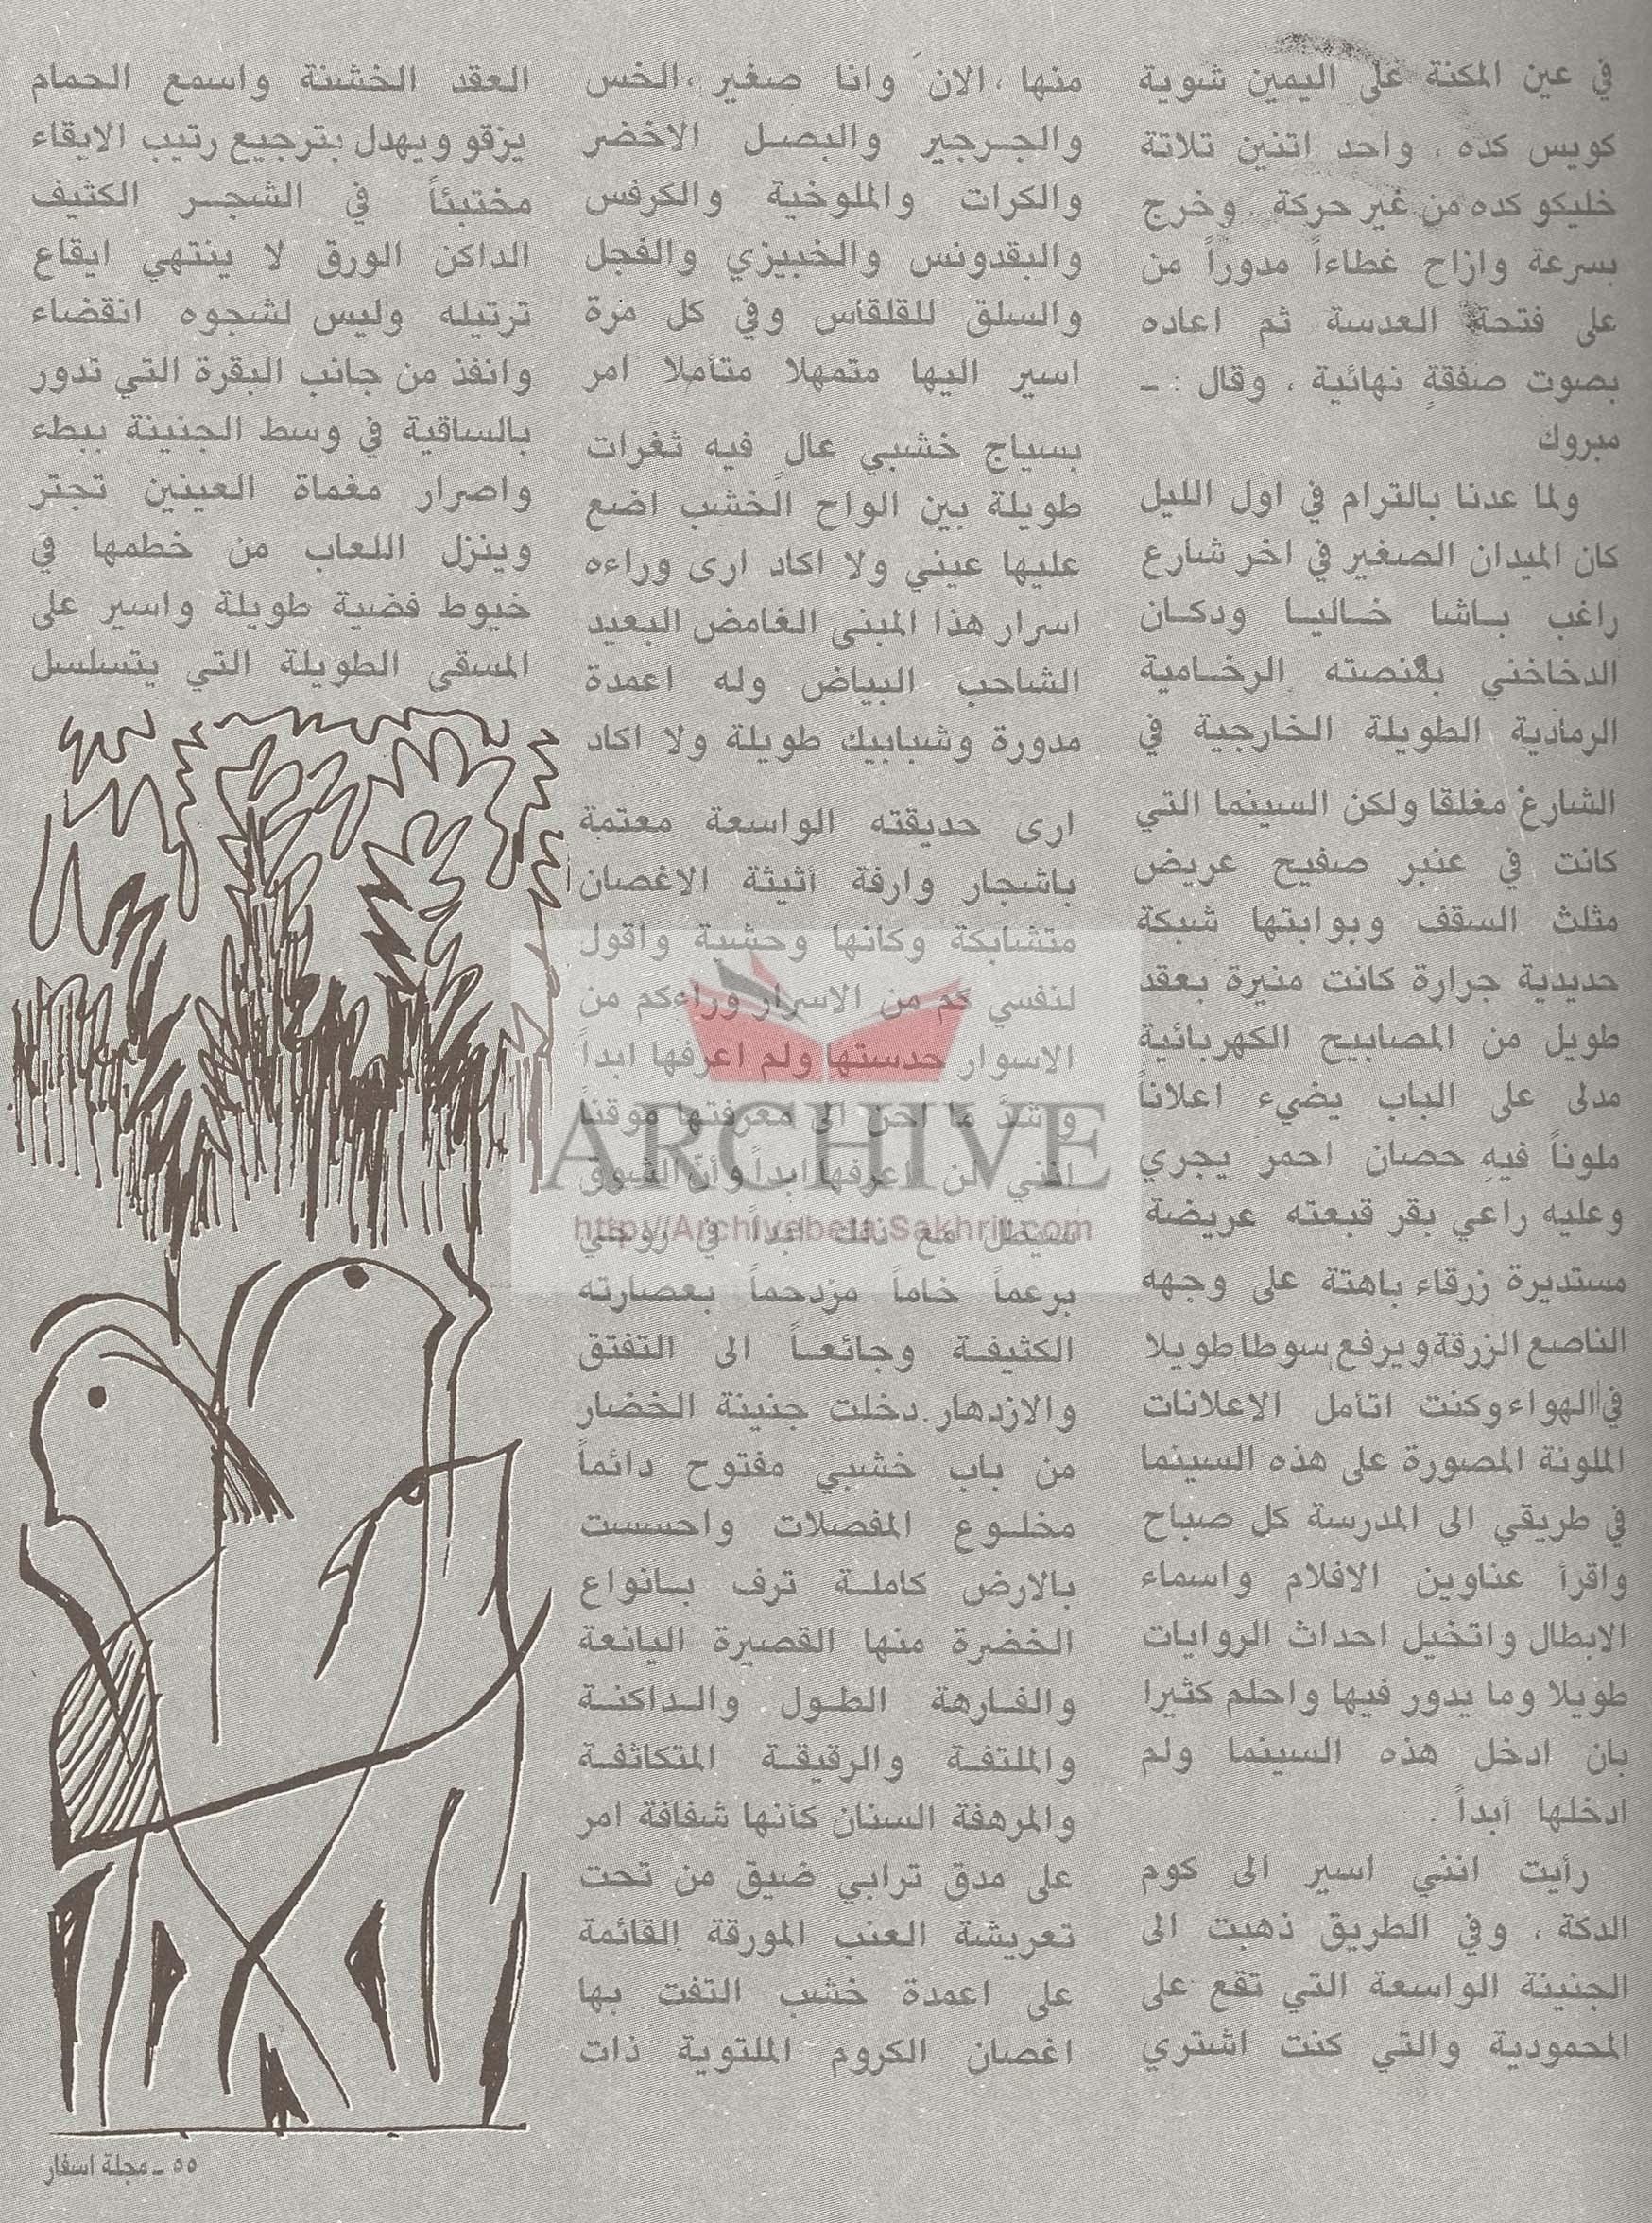 في عين المكنة على اليمين شوية
كويس كده ، واحد اتنين تلاتة
خليكو كده من غير حركة . وخرج
بسرعة وازاح غطاءاً مدوراً من
على فتحة العدسة ثم اعاده
بصوت صفقةٍ نهائية ، وقال : ـ
مبروك
ولما عدنا بالترام في اول الليل
كان الميدان الصغير في اخر شارع
راغب باشا خاليا ودكان
الدخاخني بمنصته الرخامية
الرمادية الطويلة الخارجية في
الشارع مغلقا ولكن السينما التي
كانت في عنبر صفيح عريض
مثلث السقف وبوابتها شبكة
حديدية جرارة كانت منيرة بعقد
طويل من المصابيح الكهربائية
مدلى على الباب يضيء اعلاناً
ملوناً فيهِ حصان احمر يجري
وعليه راعي بقر قبعته عريضة
مستديرة زرقاء باهتة على وجهه
الناصع الزرقة ويرفع سوطا طويلا
في الهواء وكنت اتأمل الاعلانات
الملونة المصورة على هذه السينما
في طريقي الى المدرسة كل صباح
واقرأ عناوين الافلام واسماء
الابطال واتخيل احداث الروايات
طويلا وما يدور فيها واحلم كثيرا
بان ادخل هذه السينما ولم
ادخلها أبداً .
رأيت انني اسير الى كوم
الدكة ، وفي الطريق ذهبت الى
الجنينة الواسعة التي تقع على
المحمودية والتي كنت اشتري
منها ، الان وانا صغير ، الخس
والجرجير والبصل الاخضر
والكرات والملوخية والكرفس
والبقدونس والخبيزي والفجل
والسلق للقلقاس وفي كل مرة
اسير اليها متمهلا متأملا امر
بسياج خشبي عال فيه ثغرات
طويلة بين الواح الخشب اضع
عليها عيني ولا اكاد ارى وراءه
اسرار هذا المبنى الغامض البعيد
الشاحب البياض وله اعمدة
مدورة وشبابيك طويلة ولا اكاد
ارى حديقته الواسعة معتمة
باشجار وارفة أثيثة الاغصان
متشابكة وكانها وحشية واقول
لنفسي كم من الاسرار وراءكم من
الاسوار حدستها ولم اعرفها ابداً
وشدَّ ما أحن الى معرفتها موقناً
انني لن اعرفها ابداً وأنّ الشوق
سيظل مع ذلك ابداً في روحي
برعماً خاماً مزدحماً بعصارته
الكثيفة وجائعاً الى التفتق
والازدهار. دخلت جنينة الخضار
من باب خشبي مفتوح دائماً
مخلوع المفصلات واحسست
بالارض كاملة ترف بانواع
الخضرة منها القصيرة اليانعة
والفارهة الطول والداكنة
والملتفة والرقيقة المتكاثفة
والمرهفة السنان كأنها شفافة امر
على مدق ترابي ضيق من تحت
تعريشة العنب المورقة القائمة
على اعمدة خشب التفت بها
اغصان الكروم الملتوية ذات
العقد الخشنة واسمع الحمام
يزقو ويهدل بترجيع رتيب الايقاء
مختبئاً في الشجر الكثيف
الداكن الورق لا ينتهي ايقاع
ترتيله وليس لشجوه انقضاء
وانفذ من جانب البقرة التي تدور
بالساقية في وسط الجنينة ببطء
واصرار مغماة العينين تجتر
وينزل اللعاب من خطمها في
خيوط فضية طويلة واسير على
المسقى الطويلة التي يتسلسل
ARCHIVE
http://Archivebeta.Sakhrit.com
٥٥ ـ مجلة اسفار